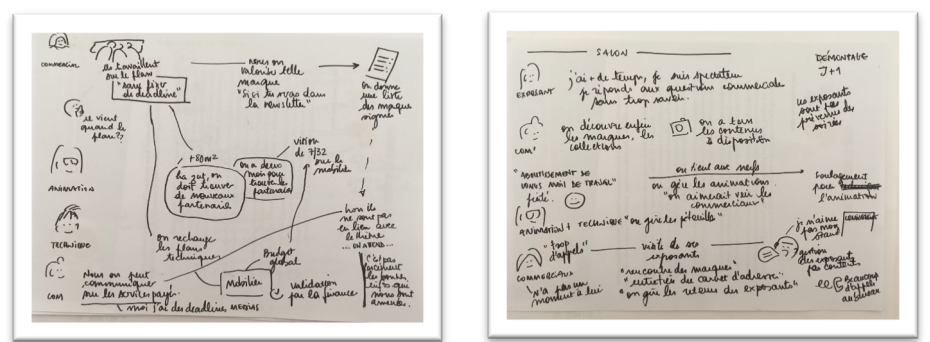 COMMERCIAUX
ils travaillent
sur le plan
"sans fixer
de deadline"
nous on
valorise telle
marque
"si si tu seras dans
la newsletter"
on donne
une liste
des marques
signées
il vient
quand le
plan??
ANIMATION
TECHNIQUE
COM
+80m2
ha zut, on
doit trouver
de nouveaux
partenaires
on a deux
mois pour
trouver les
partenaires
vision
de 7/32
sur le
mobilier
on recharge
les plans
techniques
Mobilier
Budget
global
Validation
par la finance
ils
ne sont pas
en lien avec
le thème
... ON ATTEND ...
c'est pas
forcément
les bonnes
infos qui
nous sont
amenées.
Nous on peut
communiquer
sur les services payés
moi j'ai des deadlines
SALON
DÉMONTAGE
J+1
EXPOSANT
j'ai + de temps, je suis spectateur
je réponds aux questions commerciale
sans trop savoir.
COM'
on découvre enfin
les marques, les
collections
on a tous
les contenus
à disposition
les exposants
sont pas
prévenus des
soirées
"ABOUTISSEMENT DE
LONGS MOIS DE TRAVAIL"
fierté.
on tient aux nerfs
on gère les animations.
"on aimerait voir les
commerciaux"
soulagement
pour
l'animation
ANIMATION + TECHNIQUE "on gère les pétouilles"
"trop
d'appels"
COMMERCIAUX
"n'a pas un
moment à lui"
visite de ses
exposants
"rencontre des marques"
"entretien du carnet d'adresse"
"on gère les retours des exposants"
je n'aime
pas mon
stand
gestion
des exposants
pas contents
Beaucoup
d'appels
au bureau